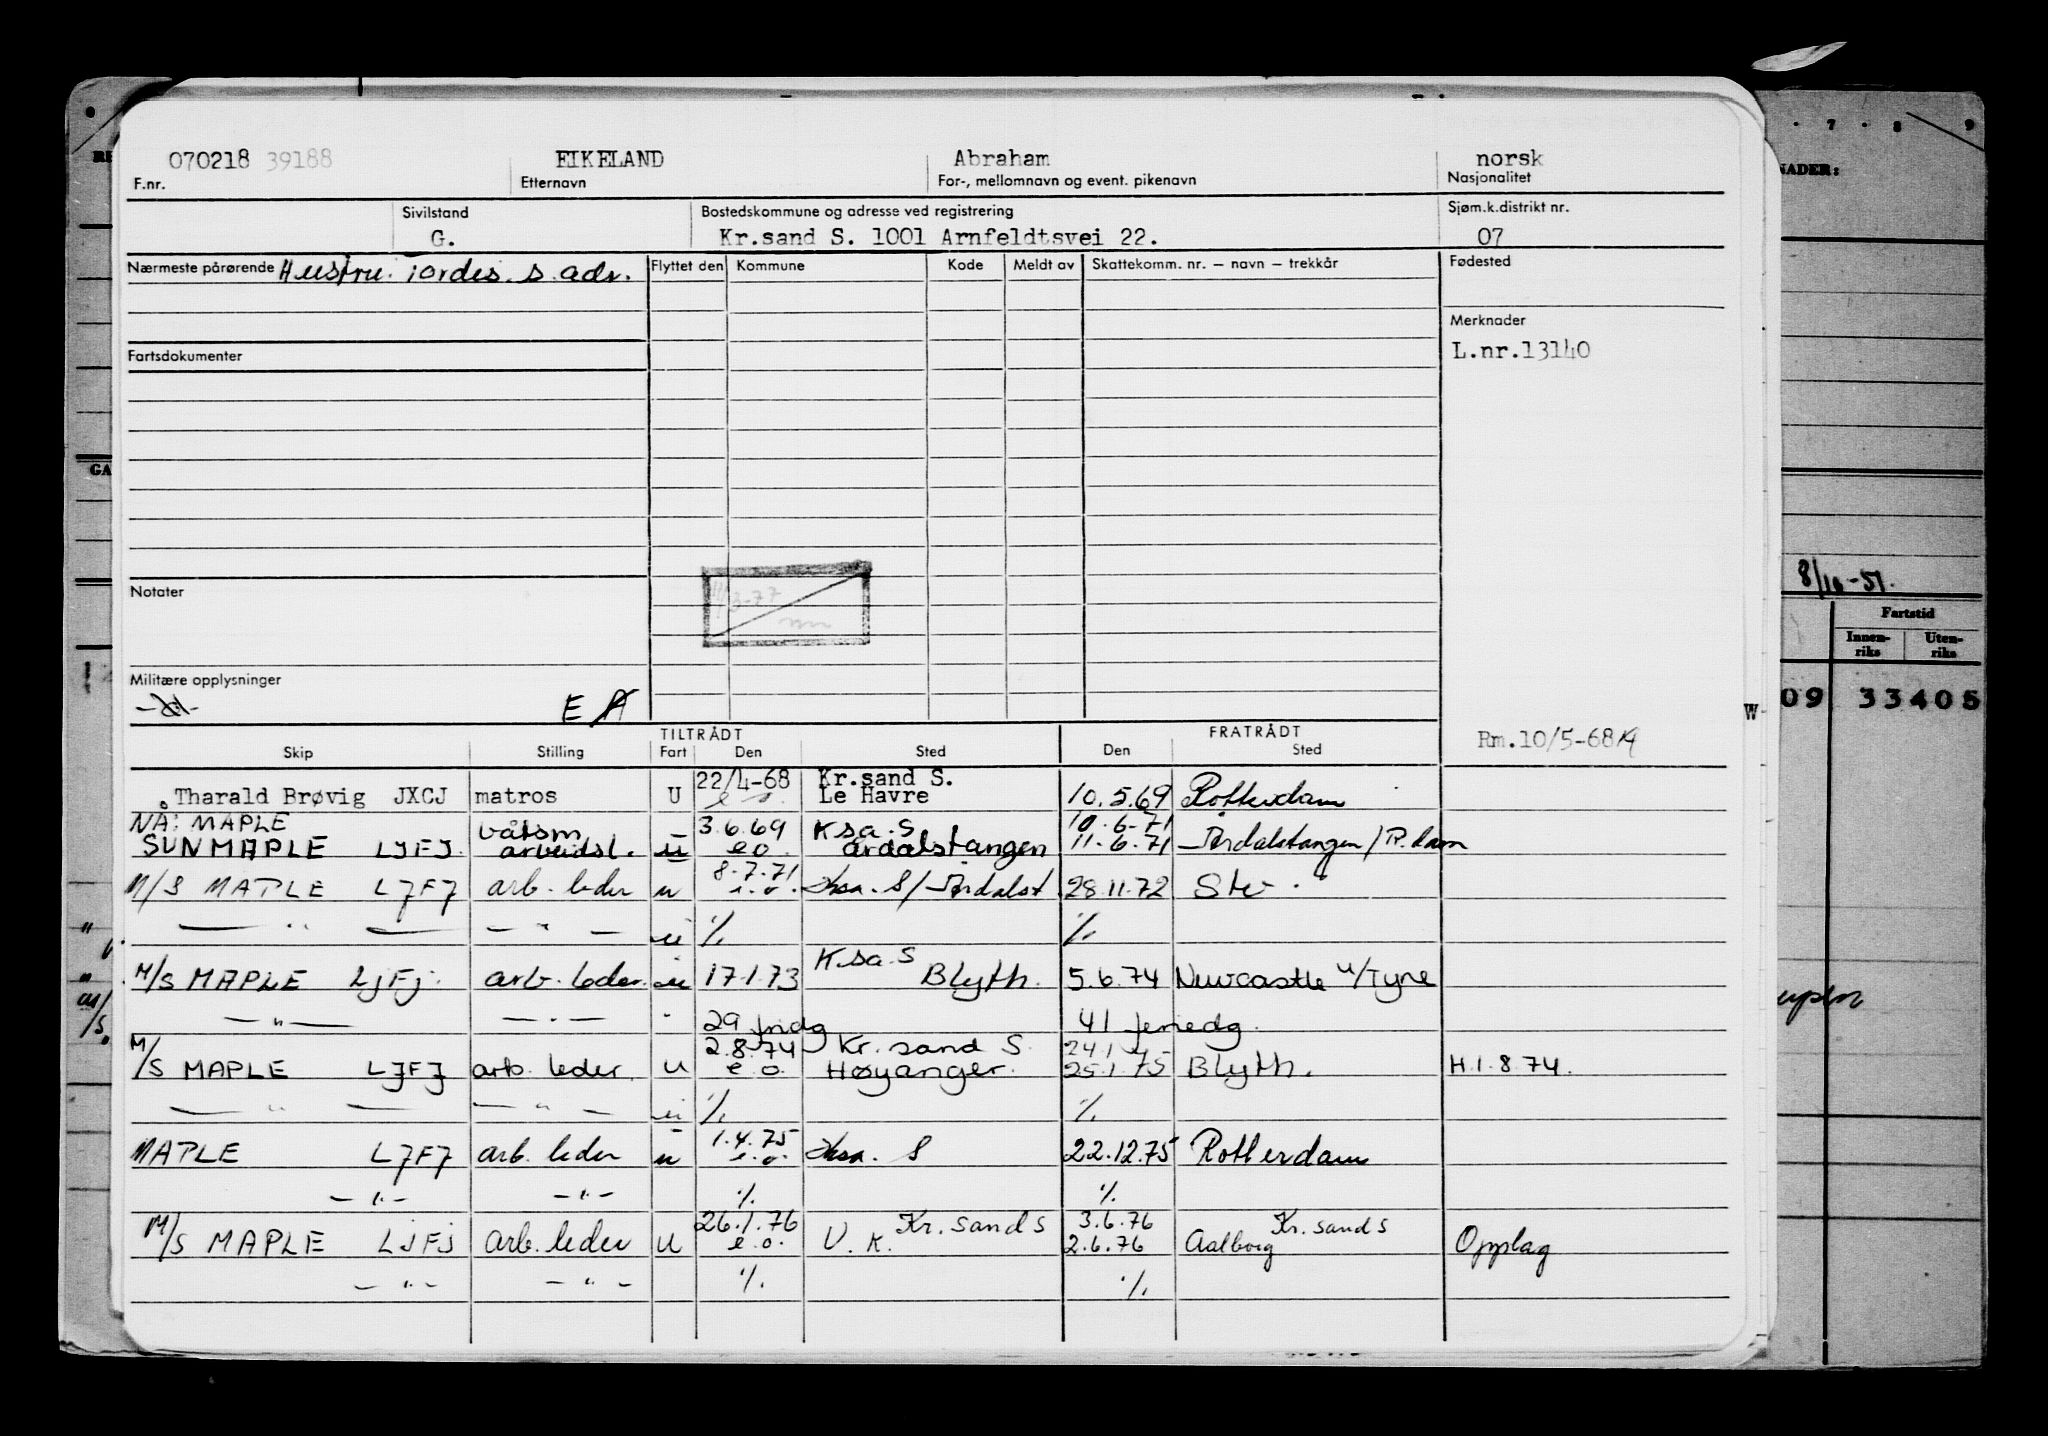 070218 39188 EIKELAND Abraham norsk
F.nr. Etternavn For-, mellomnavn og event. pikenavn Nasjonalitet
Sivilstand Bostedskommune og adresse ved registrering Sjøm.k.distrikt nr.
G. Kr.sand S. 1001 Arnfeldtsvei 22. 07
Nærmeste pårørende Hustru. Tordis. s. adr. Flyttet den Kommune Kode Meldt av Skattekomm. nr. – navn – trekkår Fødested
Merknader
Fartsdokumenter L.nr.13140
Notater
8/10-51.
Fartstid
Innen-riks Uten-riks
Militære opplysninger
E A
09 33405
W
TILTRÅDT FRATRÅDT Rm.10/5-68
Skip Stilling Fart Den Sted Den Sted
22/4-68 Kr.sand S.
Tharald Brøvig JXCJ matros U e o. Le Havre 10.5.69 Rotterdam
NÅ: MAPLE båtsm 3.6.69 Ksa. S 10.6-71
SUNMAPLE LJFJ. arbeidsl. u e o. årdalstangen 11.6.71 Årdalstangen/R.dam
M/S MAPLE LJFJ arb. leder u 8.7.71 e.o. Ksa. S/Årdalst. 28.11.72 Stv.
— " — — " — u ٪. ٪.
M/S MAPLE LJFJ. arb. leder. u 17.1.73 Ksa. S Blyth. 5.6.74 Newcastle u/Tyne
— " — — " — " 29 fridg 41 feriedg.
2.8.74 Kr. sand S. 24.1
M/S MAPLE LJFJ arb. leder. u e.o. Høyanger. 25.1.75 Blyth. H.1.8.74.
— " — — " — u ٪. ٪.
MAPLE LJFJ arb. leder u 1.4.75 e.o. Ksa. S 22.12.75 Rotterdam
— " — — " — ٪. ٪.
26.1.76 Kr. sand S 3.6.76 Kr. sand S
M/S MAPLE LJFJ arb. leder u e.o. V. K. 2.6.76 Aalborg Opplag
— " — — " — ٪. ٪.